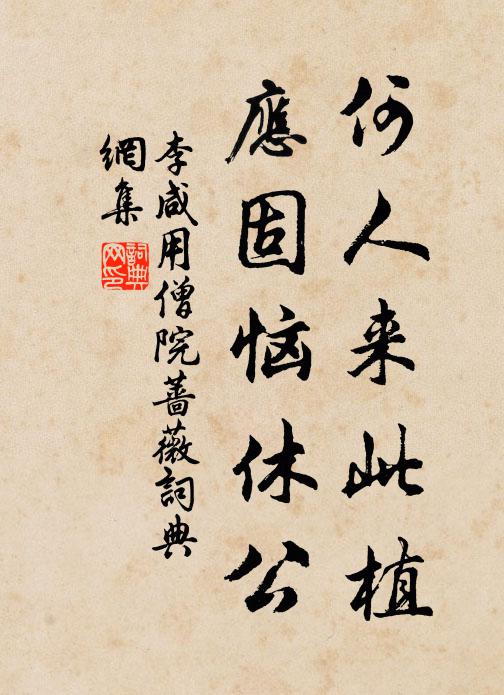 何人来此植
應固恼休公
李咸用僧院蔷薇詞典
網集
詞典网印